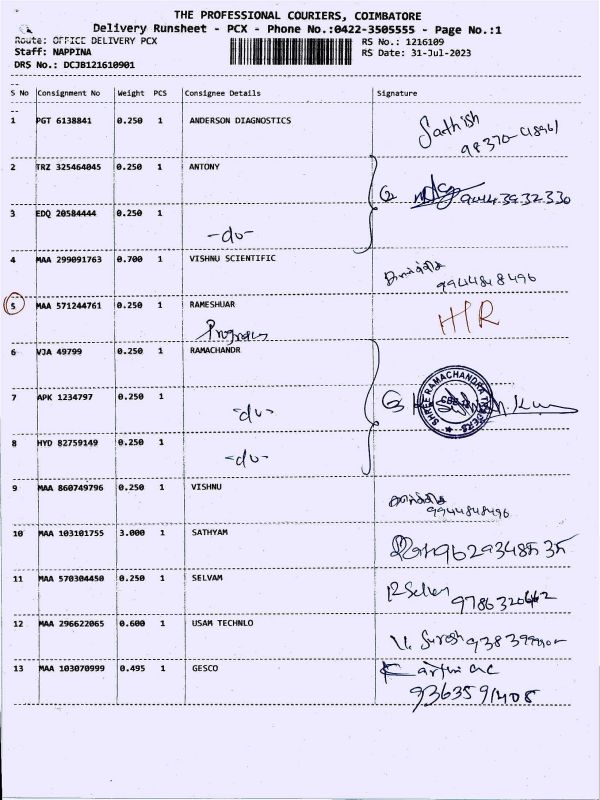 THE PROFESSIONAL COURIERS, COIMBATORE
Delivery Runsheet - PCX - Phone No.:0422-3505555 - Page No.:1
Route: OFFICE DELIVERY PCX RS No.: 1216109
Staff: NAPPINA RS Date: 31-Jul-2023
DRS No.: DCJB121610901
S No Consignment No Weight PCS Consignee Details Signature
1 PGT 6138841 0.250 1 ANDERSON DIAGNOSTICS Sathish
2 TRZ 325464045 0.250 1 ANTONY
3 EDQ 20584444 0.250 1
-do-
4 MAA 299091763 0.700 1 VISHNU SCIENTIFIC
9944848496
5 MAA 571244761 0.250 1 RAMESHUAR H/R
6 VJA 49799 0.250 1 RAMACHANDR
SHREE RAMACHANDRA TRADERS
7 APK 1234797 0.250 1
-do-
8 HYD 82759149 0.250 1
-do-
9 MAA 860749796 0.250 1 VISHNU
9944848496
10 MAA 103101755 3.000 1 SATHYAM 9629348535
11 MAA 570304450 0.250 1 SELVAM
9786320662
12 MAA 296622065 0.600 1 USAM TECHNLO
13 MAA 103070999 0.495 1 GESCO
9363591408